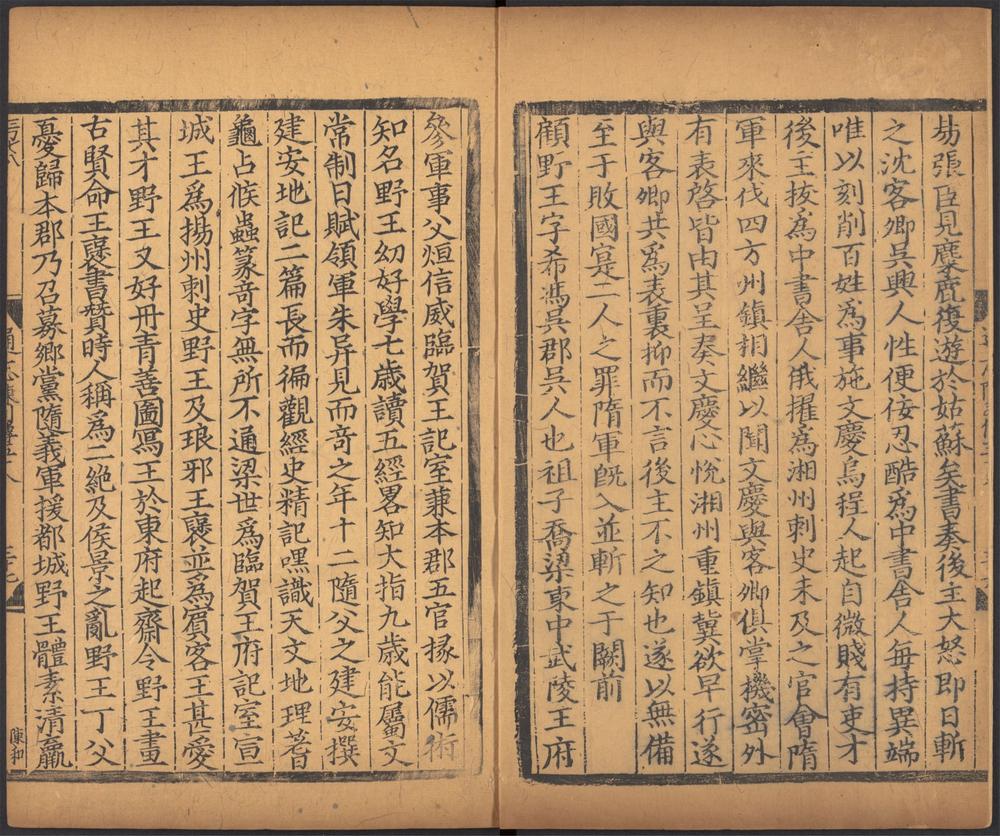 昜張臣見麋鹿復遊於姑蘇矣書奏後主大怒即日斬
之沈客卿吳興人性便佞忍酷爲中書舍人每持異端
唯以刻削百姓爲事施文慶烏程人起自微賤有吏才
後主拔爲中書舍人俄擢爲湘州刺史未及之官會隋
軍來伐四方州鎮相繼以聞文慶與客卿俱掌機密外
有表啓皆由其呈奏文慶心悅湘州重鎮冀欲早行遂
與客卿共爲表裏抑而不言後主不之知也遂以無備
至于敗國寔二人之罪隋軍旣入並斬之于闕前
顧野王字希馮吳郡吳人也祖子喬梁東中武陵王府
參軍事父烜信威臨賀王記室兼本郡五官掾以儒術
知名野王幼好學七歲讀五經畧知大指九歲能屬文
常制日賦領軍朱异見而奇之年十二隨父之建安撰
建安地記二篇長而徧觀經史精記嘿識天文地理蓍
龜占候蟲篆奇字無所不通梁世爲臨賀王府記室宣
城王爲揚州刺史野王及琅邪王褒並爲賓客王甚愛
其才野王又好丹青善圖寫王於東府起齋令野王畫
古賢命王褒書贊時人稱爲二絶及侯景之亂野王丁父
憂歸本郡乃召募鄉黨隨義軍援都城野王體素清羸
陳和